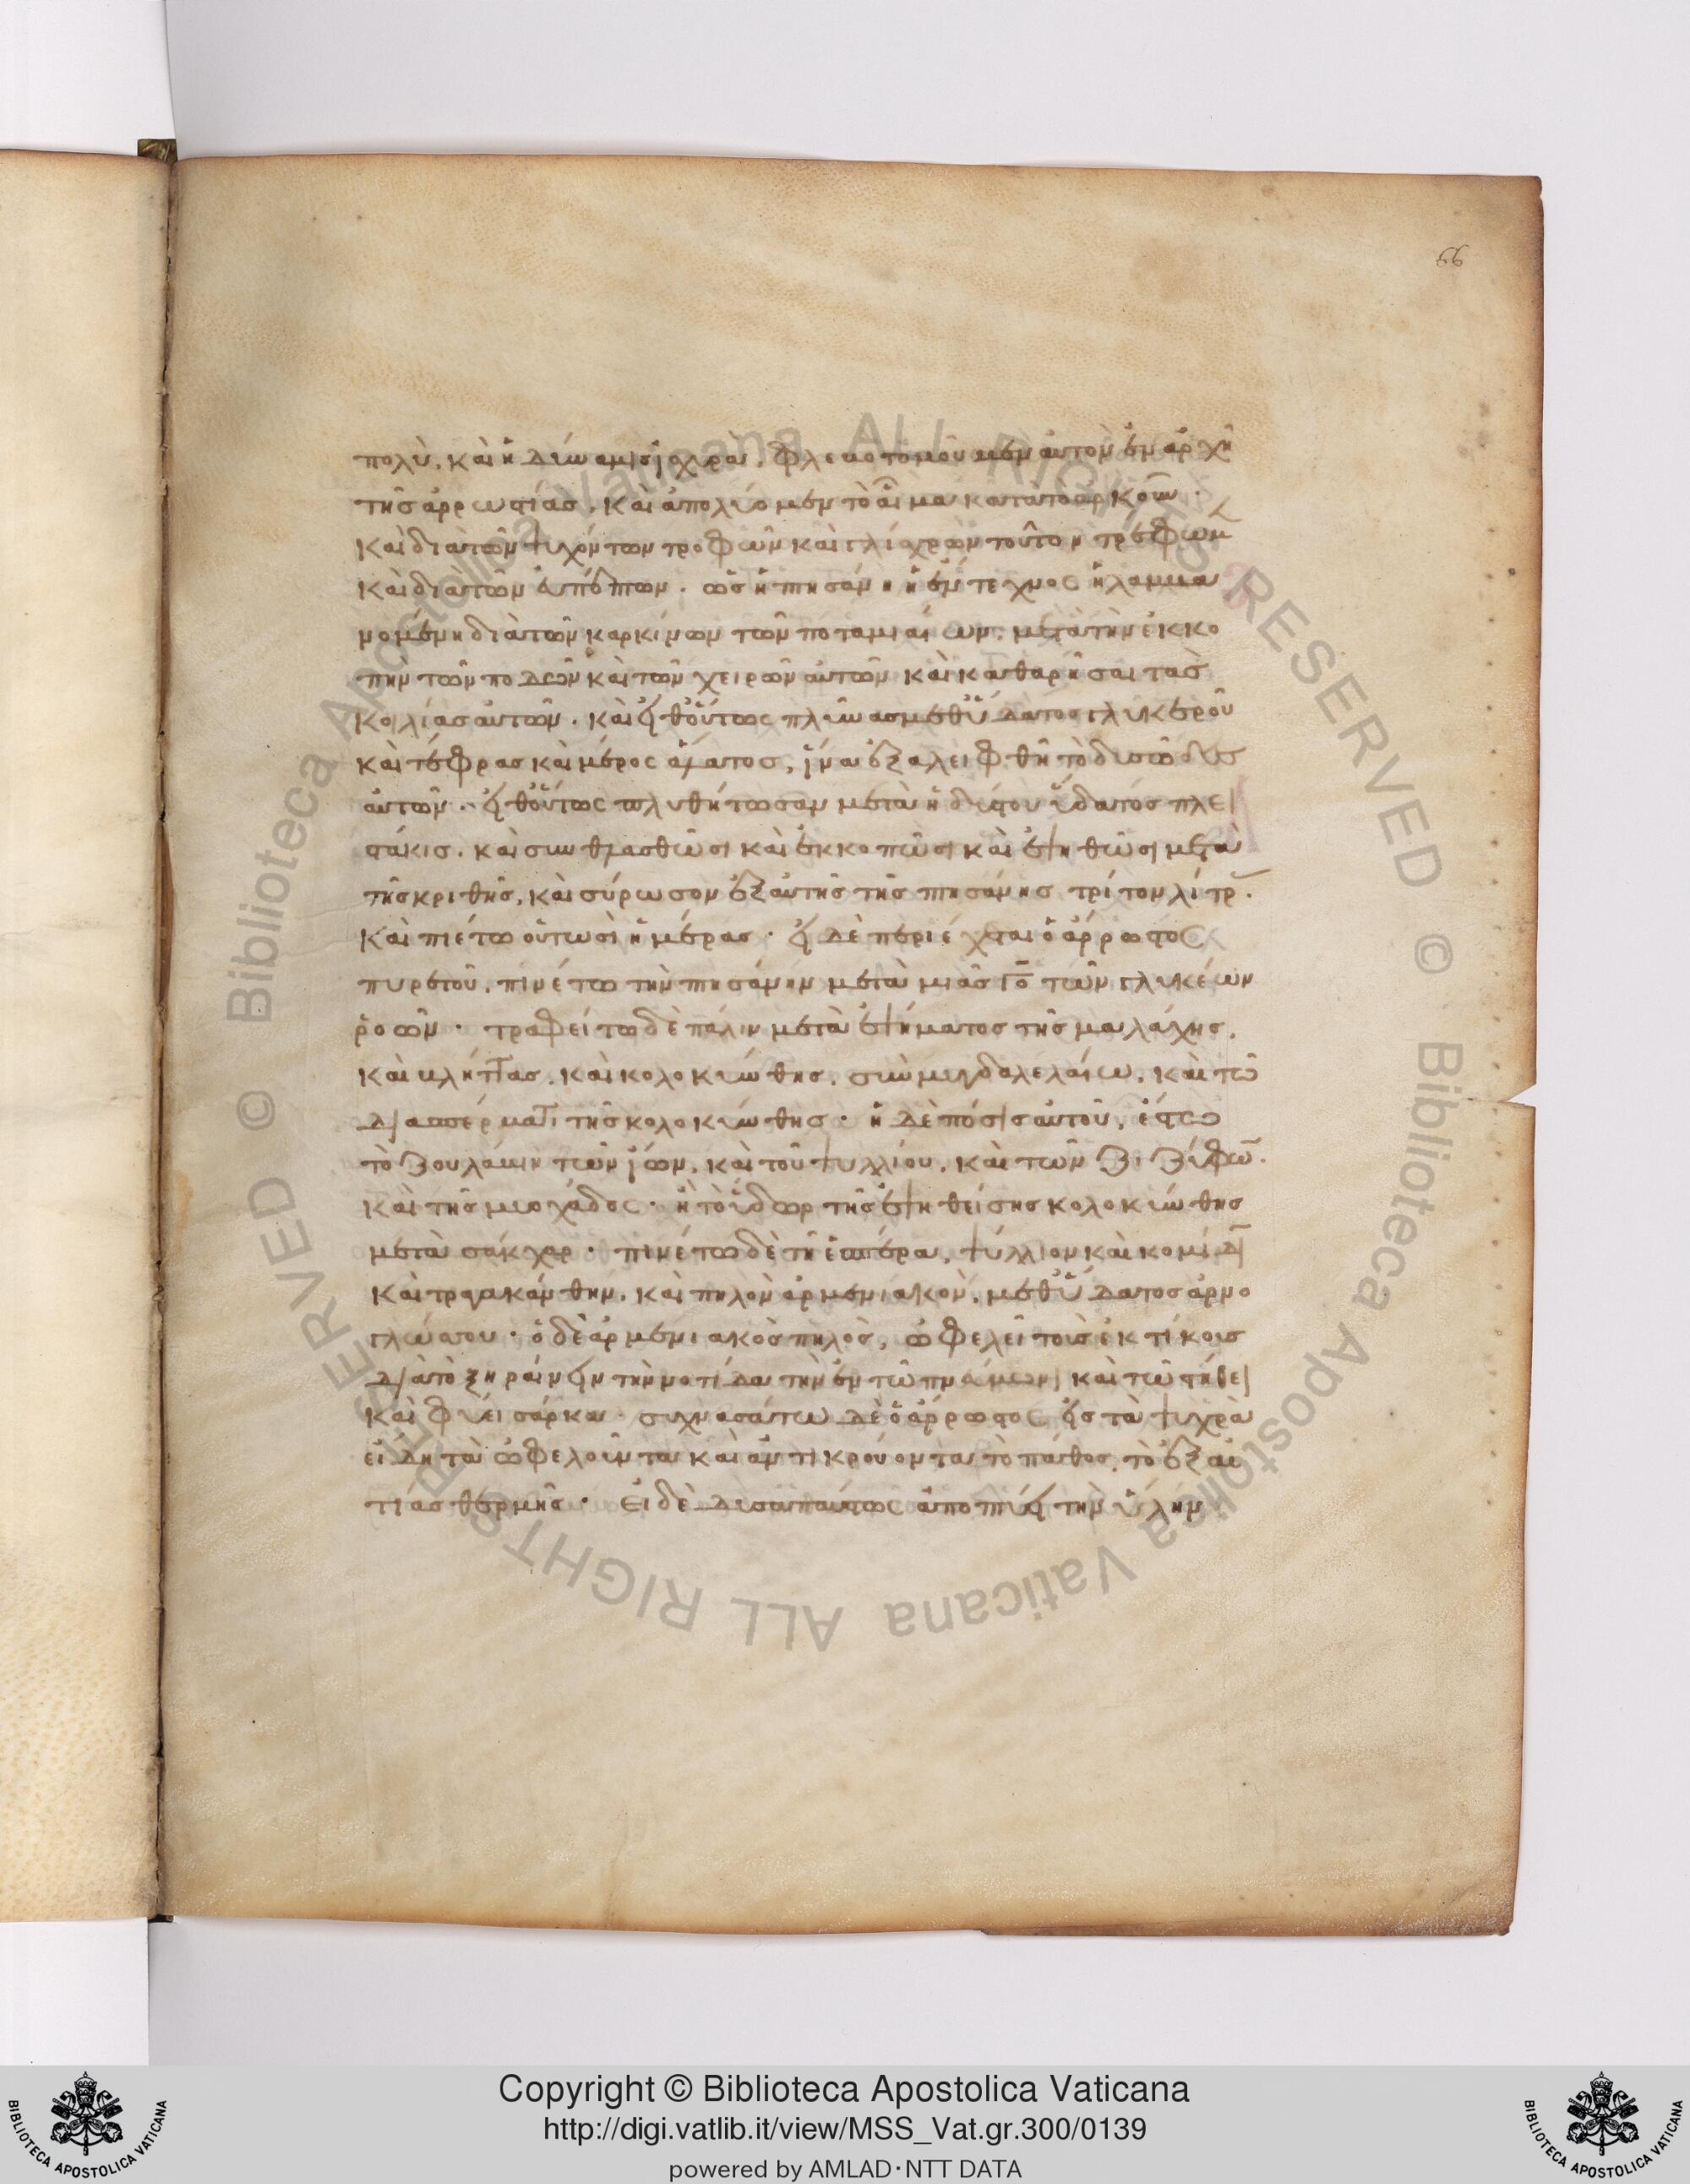 66
πολὺ, καὶ ἡ δύναμις ἰσχυρὰ, φλεβοτομοῦμεν αὐτὸν ἐν ἀρχῇ
τῆς ἀρρωστίας, καὶ ἀπολύομεν τὸ αἷμα κατὰ τὸ ἀρκοῦν·
καὶ διὰ τῶν τυχόντων τροφῶν καὶ γλίσχρων τοῦτον τρέφωμεν
καὶ διὰ τῶν εὐπέπτων· ὡς ἡ πτησάνη ἡ ἔντεχνος ἡ λαμβα
νομένη διὰ τῶν καρκίνων τῶν ποταμιαίων, μετὰ τὴν ἐκκο
πὴν τῶν ποδῶν καὶ τῶν χειρῶν αὐτῶν καὶ καθαρῆσαι τὰς
κοιλίας αὐτῶν· καὶ εἶθ' οὕτως πλῦνας μεθ' ὕδατος γλυκεροῦ
καὶ τέφρας καὶ μέρος ἅλατος, ἵνα ἐξαλειφθῆ τὸ δυσῶδες
αὐτῶν· εἶθ' οὕτως πλυθήτωσαν μετὰ ἡδίστου ὕδατος πλει
στάκις. καὶ συνθλασθῶσι καὶ ἐκκοπῶσι καὶ ἑψηθῶσι μετὰ
τῆς κριθῆς, καὶ σύρωσον ἐξ αὐτῆς τῆς πτησάνης τρίτον λίτρ
καὶ πιέτω οὕτωσὶ ἡμέρας· εἰ δὲ περιέχεται ὁ ἄρρωστος
πυρετοῦ, πινέτω τὴν πτησάνην μετὰ μιᾶς Γο τῶν γλυκέων
ῥοῶν· τραφείτω δὲ πάλιν μετὰ ἑψήματος τῆς μαλάχης,
καὶ βλήτας, καὶ κολοκύνθης, σὺν μυγδαλελαίω, καὶ τῶ
διασπέρματι τῆς κολοκύνθης· ἡ δὲ πόσις αὐτοῦ, ἔστω
τὸ ζουλάπιν τῶν ἴων, καὶ τοῦ ψυλλίου, καὶ τῶν ζιζύφων
καὶ τῆς μυοχάδος· ἢ τὸ ὕδωρ τῆς ἑψηθείσης κολοκύνθης
μετὰ σάκχαρ· πινέτω δὲ τῆ ἑσπέρα, ψύλλιον καὶ κομίδι
καὶ τραγακάνθην, καὶ πηλὸν ἀρμενιακὸν, μεθ' ὕδατος ἀρνο
γλώσσου· ὁ δὲ ἀρμενιακὸς πηλὸς, ὠφελεῖ τοὺς ἑκτίκους
διὰ τὸ ξηραίνειν τὴν νοτίδα τὴν ἐν τῶ πνεύμωνι καὶ τῶ στήθει
καὶ φύει σάρκα· συχνασάτω δὲ ὁ ἄρρωστος εἰς τὰ ψυχρὰ
εἴδη τὰ ὠφελοῦντα καὶ ἀντικρούοντα τὸ πάθος, τὸ ἐξ αἰ
τίας θερμῆς· Εἰ δὲ δυσαπαύτως ἀποπτύει τὴν ὕλην
Copyright © Biblioteca Apostolica Vaticana
http://digi.vatlib.it/view/MSS_Vat.gr.300/0139
powered by AMLAD·NTT DATA
BIBLIOTECA APOSTOLICA VATICANA
BIBLIOTECA APOSTOLICA VATICANA
© Biblioteca Apostolica Vaticana ALL RIGHTS RESERVED
© Biblioteca Apostolica Vaticana ALL RIGHTS RESERVED